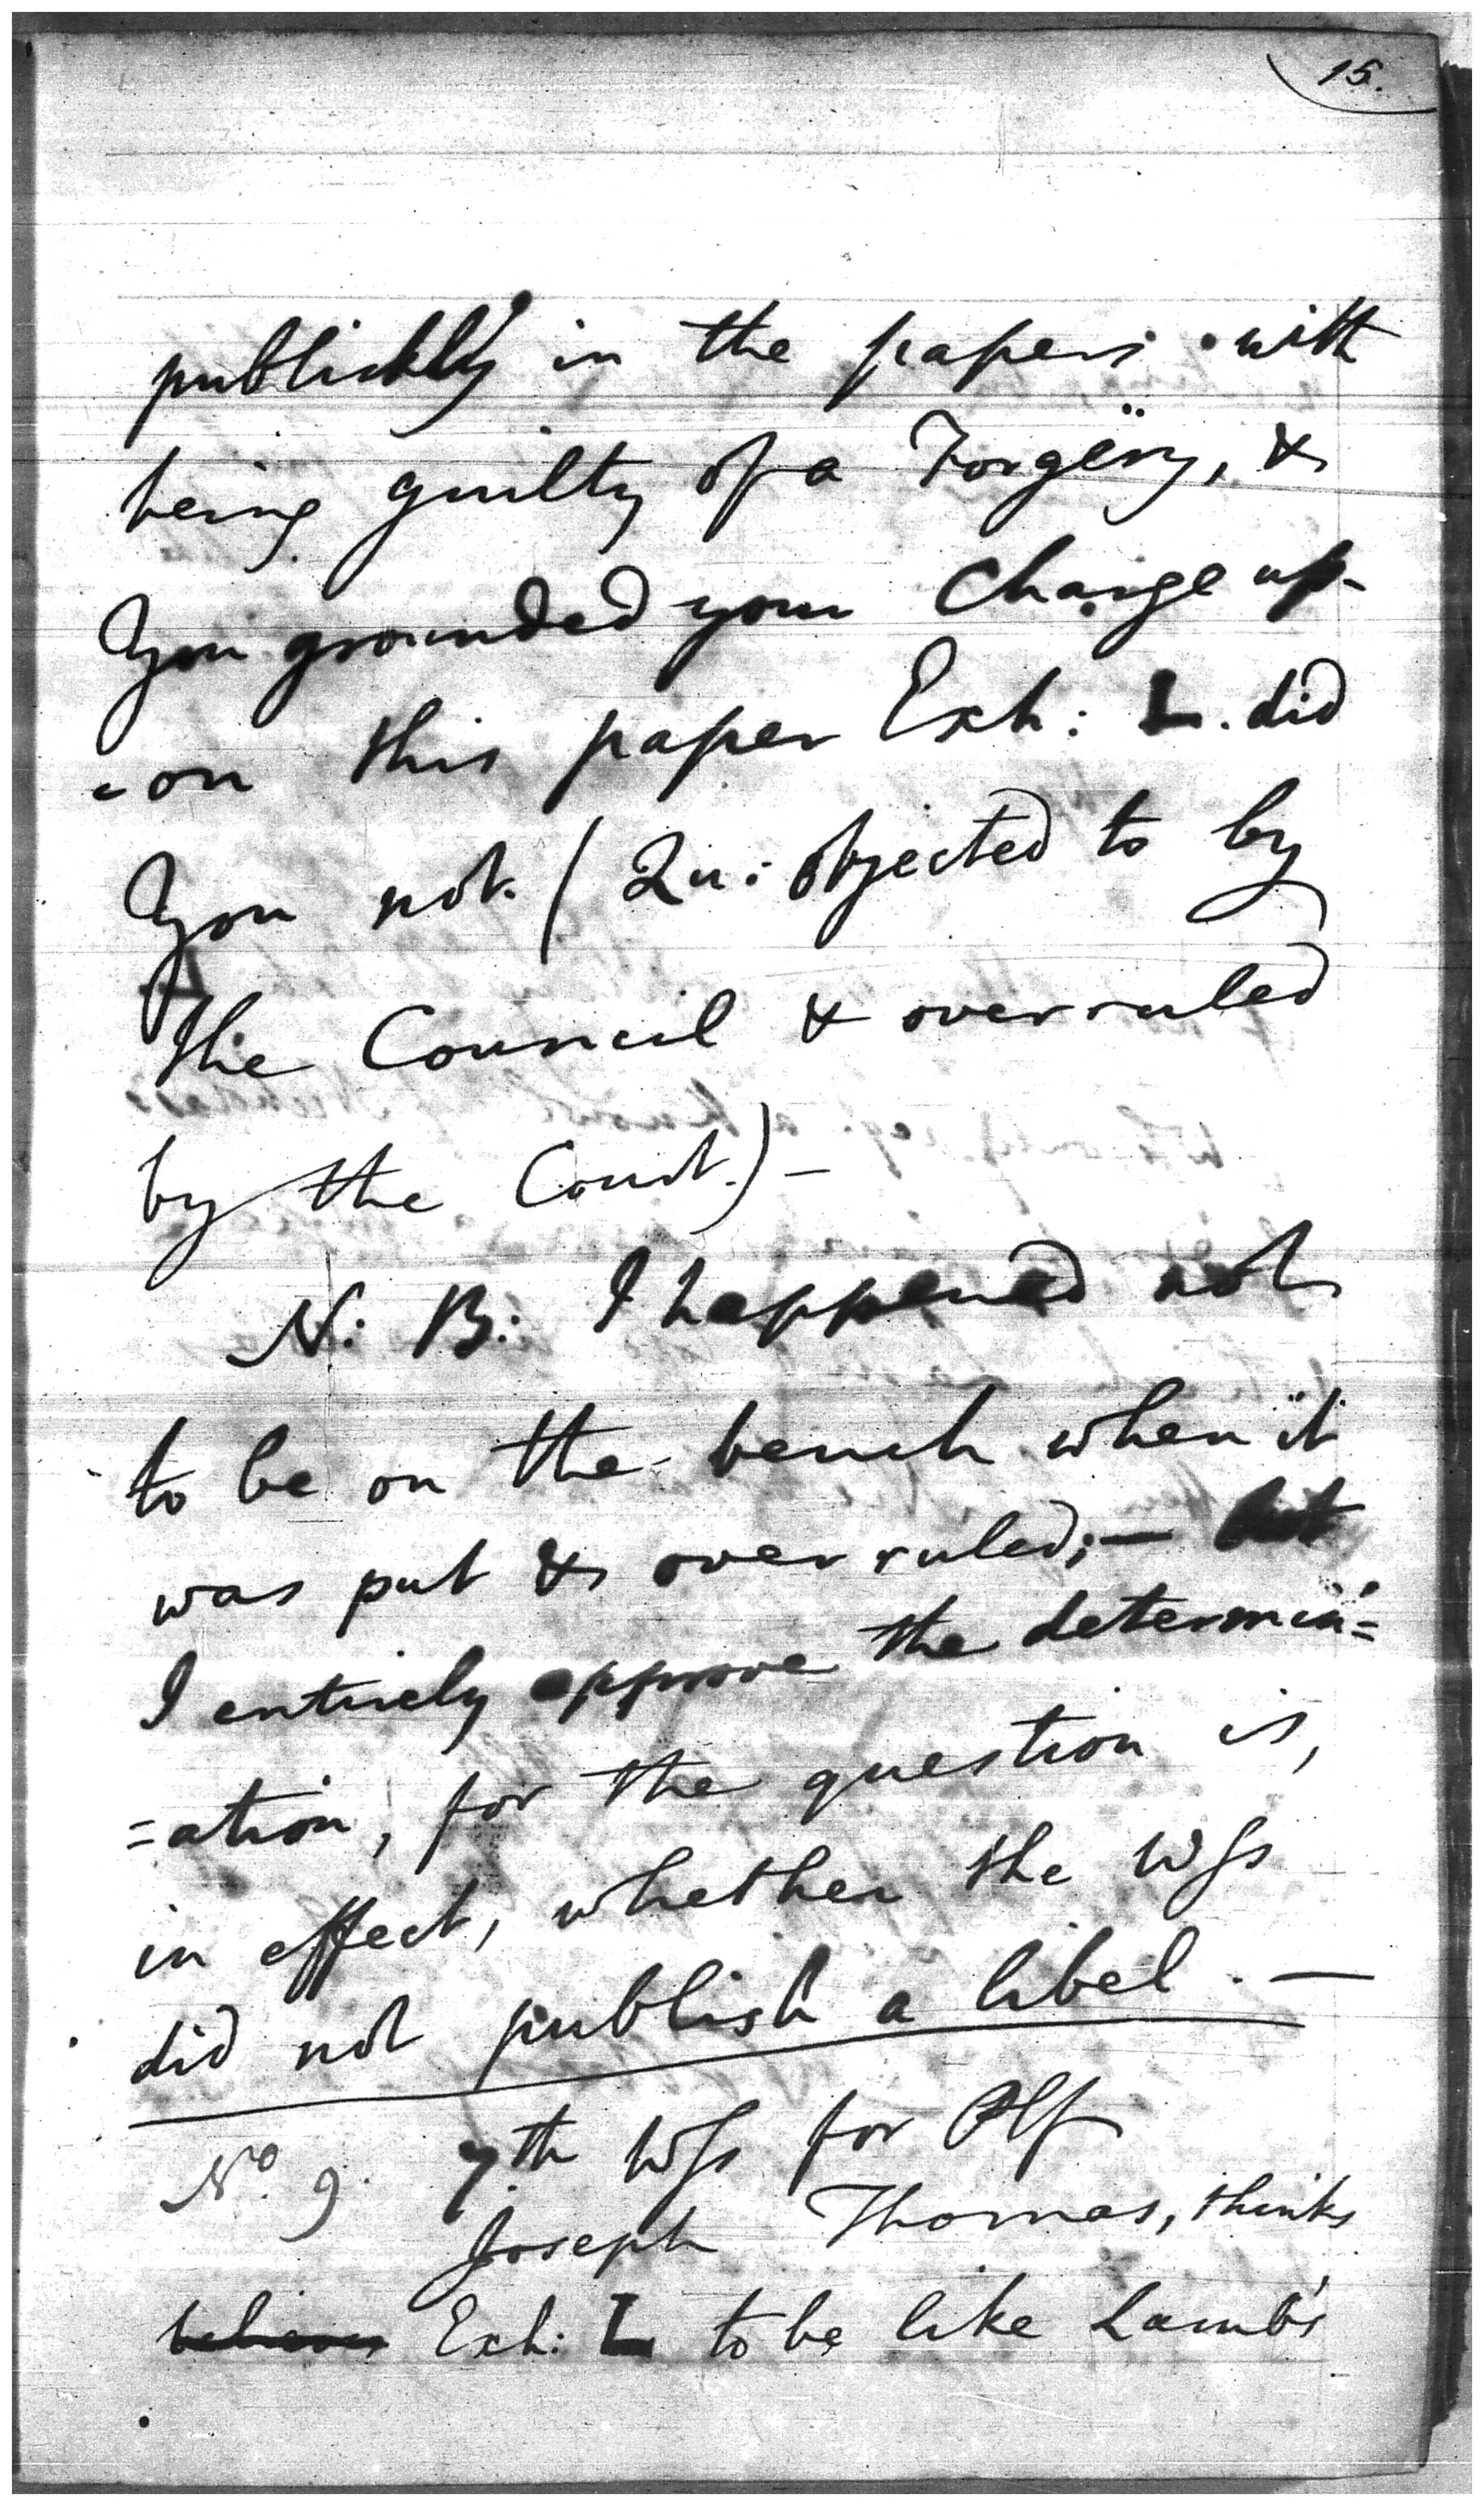 15.
publickly in the papers with
being guilty of a Forgery, &
You grounded your Charge up-
-on this paper Exh: L. did
You not. (Qu: objected to by
the Council & overruled
by the Court.) –
N: B: I happened not
to be on the bench when it
was put & overruled; – but
I entirely approve the determin=
=ation, for the question is,
in effect, whether the Wſs
did not publish a libel. —
No. 9. 7th Wſs for Plf
Joseph Thomas, thinks
believes Exh: L to be like Lamb's